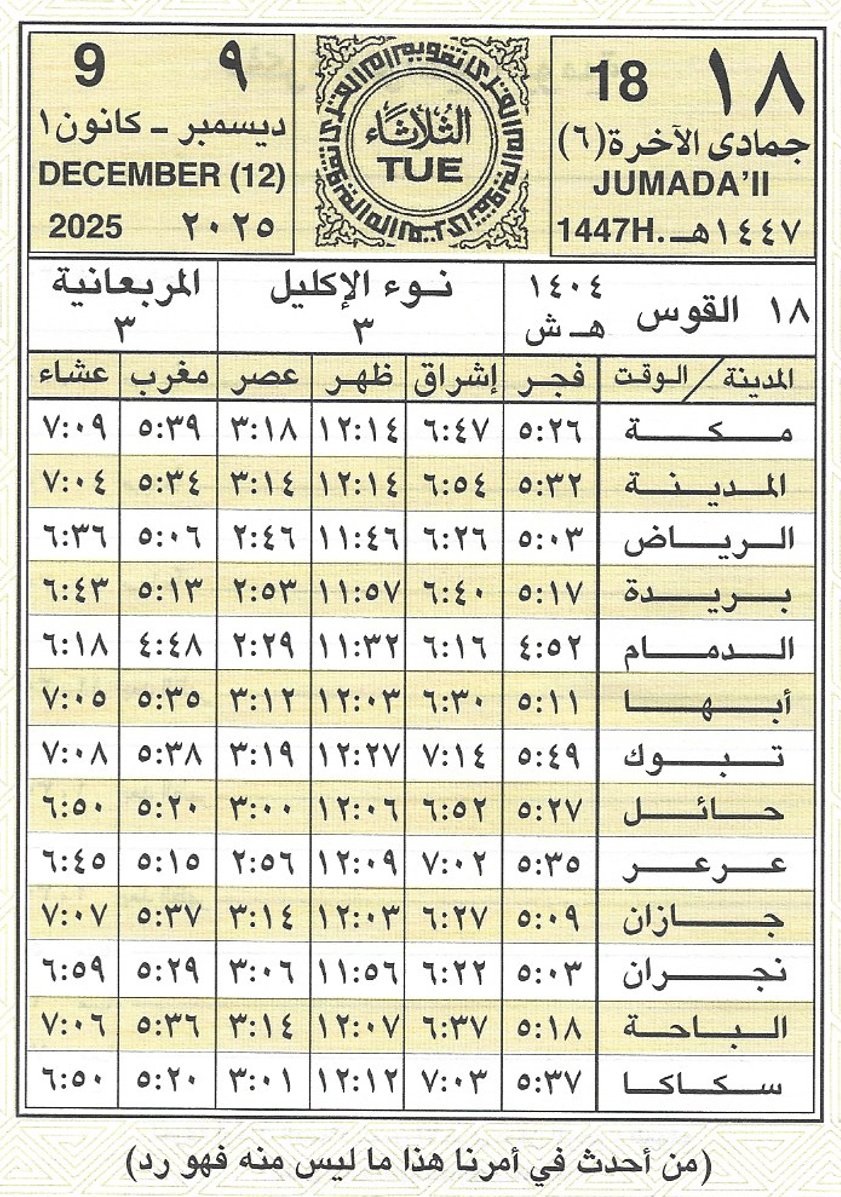 ١٨ 18
جمادى الآخرة (٦)
JUMADA'II
١٤٤٧هـ 1447H.
تقويم أم القرى
الثُلاثَاء
TUE
٩ 9
ديسمبر - كانون١
DECEMBER (12)
٢٠٢٥ 2025
١٨ القوس ١٤٠٤ هـ ش
نـوء الإكليل ٣
المربعانية ٣
المدينة / الوقت فجر إشراق ظهر عصر مغرب عشاء
مكة ٥:٢٦ ٦:٤٧ ١٢:١٤ ٣:١٨ ٥:٣٩ ٧:٠٩
المدينة ٥:٣٢ ٦:٥٤ ١٢:١٤ ٣:١٤ ٥:٣٤ ٧:٠٤
الرياض ٥:٠٣ ٦:٢٦ ١١:٤٦ ٢:٤٦ ٥:٠٦ ٦:٣٦
بريدة ٥:١٧ ٦:٤٠ ١١:٥٧ ٢:٥٣ ٥:١٣ ٦:٤٣
الدمام ٤:٥٢ ٦:١٦ ١١:٣٢ ٢:٢٩ ٤:٤٨ ٦:١٨
أبها ٥:١١ ٦:٣٠ ١٢:٠٣ ٣:١٢ ٥:٣٥ ٧:٠٥
تبوك ٥:٤٩ ٧:١٤ ١٢:٢٧ ٣:١٩ ٥:٣٨ ٧:٠٨
حائل ٥:٢٧ ٦:٥٢ ١٢:٠٦ ٣:٠٠ ٥:٢٠ ٦:٥٠
عرعر ٥:٣٥ ٧:٠٢ ١٢:٠٩ ٢:٥٦ ٥:١٥ ٦:٤٥
جازان ٥:٠٩ ٦:٢٧ ١٢:٠٣ ٣:١٤ ٥:٣٧ ٧:٠٧
نجران ٥:٠٣ ٦:٢٢ ١١:٥٦ ٣:٠٦ ٥:٢٩ ٦:٥٩
الباحة ٥:١٨ ٦:٣٧ ١٢:٠٧ ٣:١٤ ٥:٣٦ ٧:٠٦
سكاكا ٥:٣٧ ٧:٠٣ ١٢:١٢ ٣:٠١ ٥:٢٠ ٦:٥٠
(من أحدث في أمرنا هذا ما ليس منه فهو رد)